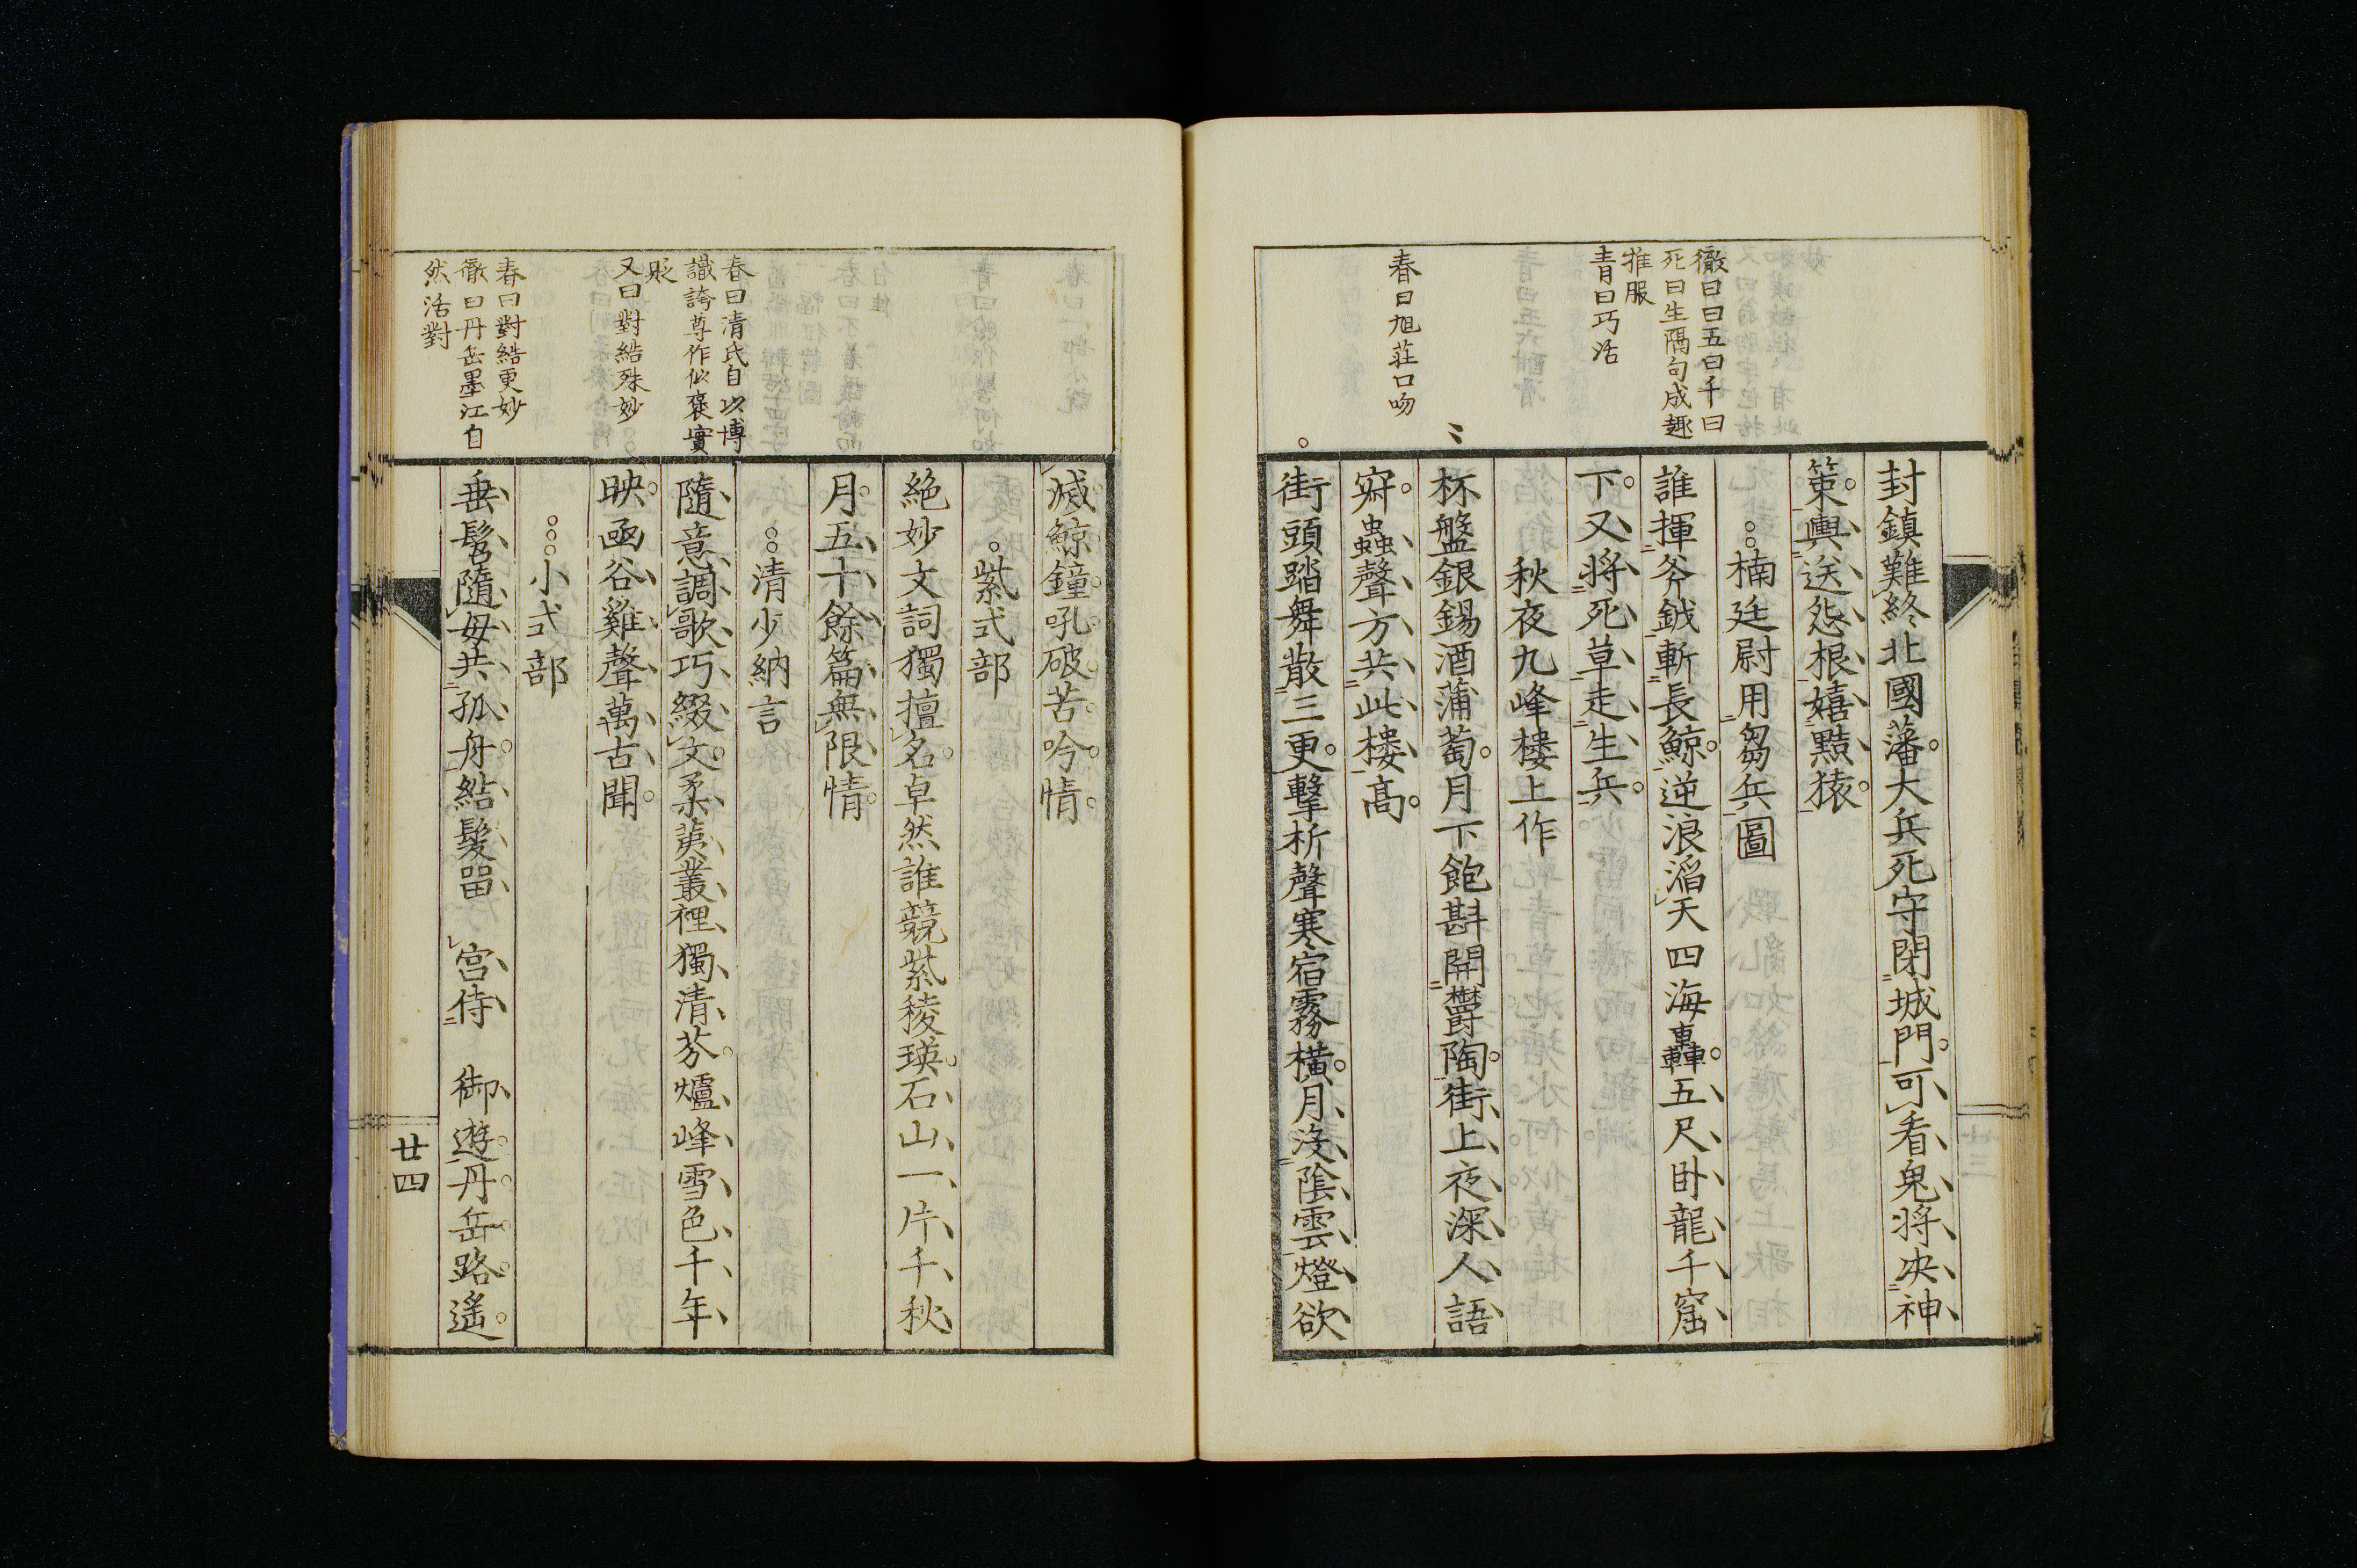 徹曰曰五曰千曰
死曰生隔句成趣
推服
青曰巧活
春曰旭莊口吻
封鎮難終北國藩大兵死守閉城門可看鬼將決神
策輿送怨根嬉㸃猿
楠廷尉用芻兵圖
誰揮斧鉞斬長鯨逆浪滔天四海轟五尺卧龍千窟
下又將死草走生兵
秋夜九峰楼上作
杯盤銀錫酒蒲萄月下飽斟開欝陶街上夜深人語
寂蟲聲方共此楼高
街頭踏舞散三更擊柝聲寒宿霧橫月沒陰雲燈欲
春曰清氏自以博
識誇尊作似褒實
貶
又曰對結殊妙
春曰對結更妙
徹曰丹岳墨江自
然活對
滅鯨鐘吼破苦吟情
紫式部
絶妙文詞獨擅名卓然誰競紫稜瑛石山一片千秋
月五十餘篇無限情
清少納言
隨意調歌巧綴文柔荑叢裡獨清芬爐峰雪色千年
映函谷雞聲萬古聞
小式部
垂髫隨母共孤舟結髮畱宮侍御遊丹岳路遙
廿四